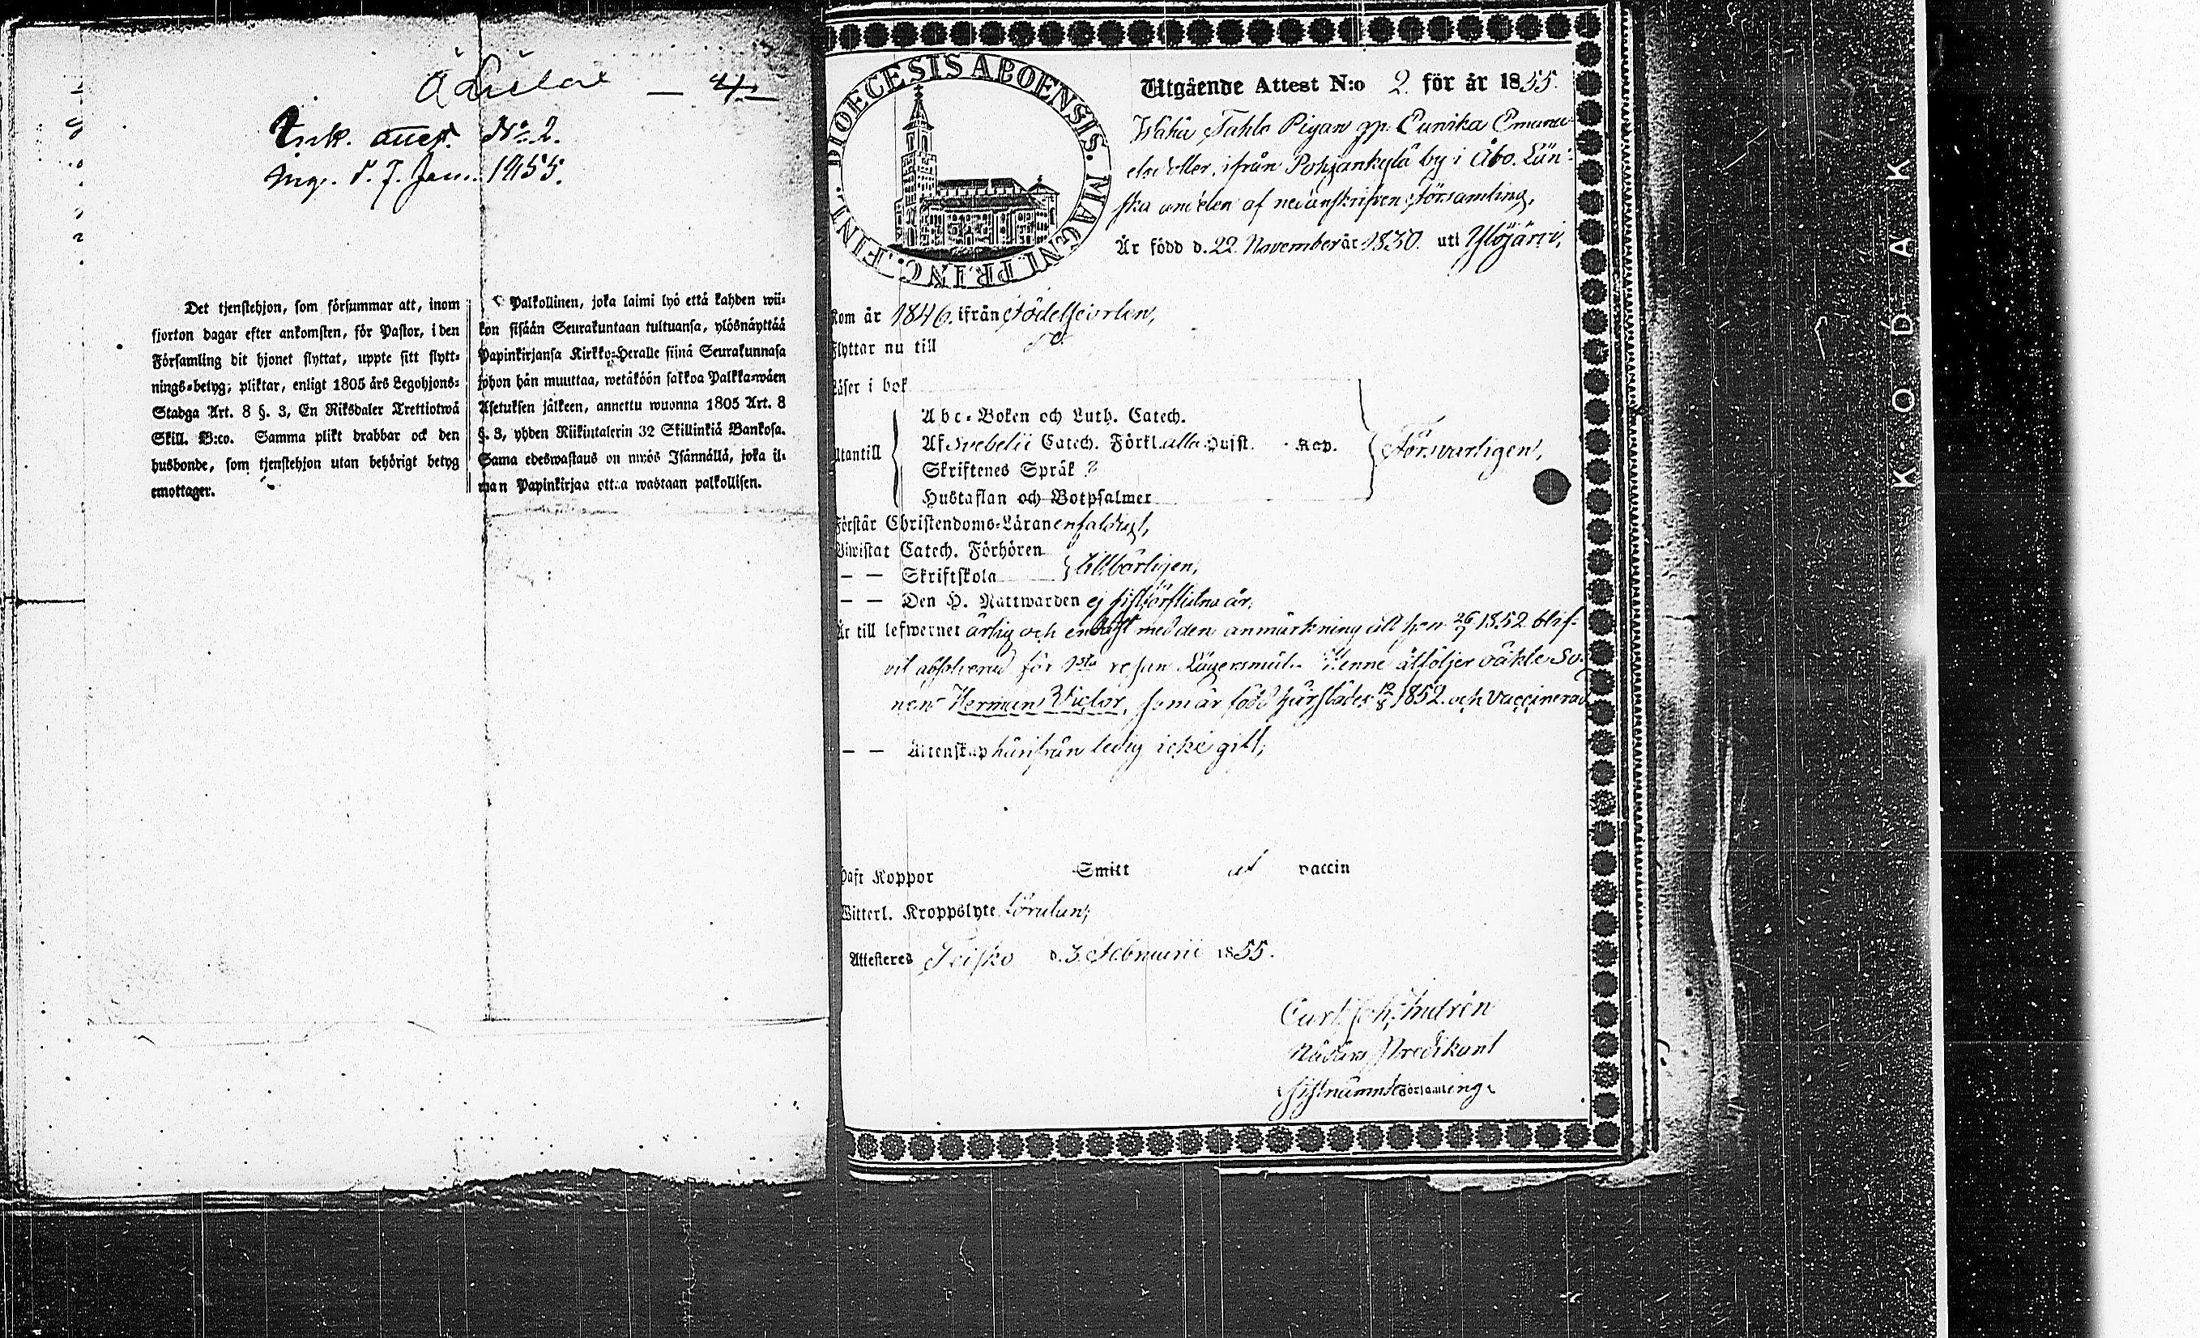 Ink. attest. No 2.
Ing. d. 7. Jan. 1855.
Det tjenstehjon, som försummar att, inom
fjorton dagar efter ankomsten, för Pastor, i den
Församling dit hjonet flyttat, uppte sitt flytt-
nings-betyg; pliktar, enligt 1805 års Legohjons-
Stadga Art. 8 §. 3, En Riksdaler Trettiotwå
Skill. B:co. Samma plikt drabbar ock den
husbonde, som tjenstehjon utan behörigt betyg
emottager.
Palkollinen, joka laimi lyö että kahden wii-
kon sisään Seurakuntaan tultuansa, ylösnäyttää
Papinkirjansa Kirkko-Heralle siinä Seurakunnasa
johon hän muuttaa, wetäköön sakkoa Palkka-wäen
Asetuksen jälkeen, annettu wuonna 1805 Art. 8
§. 3, yhden Riikintalerin 32 Skillinkiä Bankosa.
Sama edeswastaus on myös Isännällä, joka il-
man Papinkirjaa ottaa wastaan palkollisen.
DIOECESIS ABOENSIS. MAGNI PRINC. FINL.
Utgående Attest N:o 2 för år 1855.
Waha Pahlo Pigan gp. Eunika Emanu-
elsdotter, ifrån Pohjankylä by i Åbo Län-
ska andelen af nedanskrifven församling,
Är född d. 22 November år 1830. uti Ylöjärvi,
Kom år 1846. ifrån födelseorten,
Flyttar nu till
Läser i bok
Utantill
Abc-Boken och Luth. Catech.
Af Svebelii Catech. Förkl. alla Qvist. Kap.
Skriftenes Språk ?
Hustaflan och Botpsalmer
försvarligen,
Förstår Christendoms-Läran enfaldigt,
Biwistat Catech. Förhören
— — Skriftskola
tillbörligen,
— — Den H. Nattwarden ej sistförflutna år,
Är till lefwernet ärlig och endast med den anmärkning att hon 26/9 1852 blif-
vit absolverad för 1sta resan Lägersmål. Henne åtföljer oäkte So-
nen Herman Victor, som är född härstädes 12/8 1852. och vaccinerad
— — Ächtenskap härifrån ledig icke gift,
Haft Koppor Smitt vaccin
Witterl. Kroppslyte förutan,
Attesteras Teisko d. 3. Februarii 1855.
Predikant
sistnämnde församling
KODAK